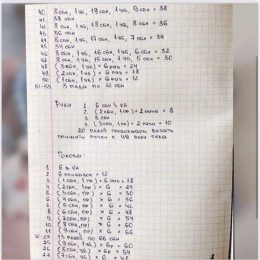 40. 8 сбн, 1 уб, 19 сбн, 1 уб, 9 сбн = 38
41. 38 сбн
42. 8 сбн, 1 уб, 18 сбн, 1 уб, 8 сбн = 36
43. 36 сбн
44. 8 сбн, 1 уб, 17 сбн, 1 уб, 7 сбн = 34
45. 34 сбн
46. 8 сбн, 1 уб, 16 сбн, 1 уб, 6 сбн = 32
47. 8 сбн, 1 уб, 15 сбн, 1 уб, 5 сбн = 30
48. (3 сбн, 1 уб) × 6 раз = 24
49. (2 сбн, 1 уб) × 6 = 18
50. (1 сбн, 1 уб) × 6 = 12
51-53. 3 ряда по 12 сбн
Руки: 1. 6 сбн в ка
2. (2 сбн, 1 пр) × 2 раза = 8
3. 8 сбн
4. (3 сбн, 1 пр) × 2 раза = 10
Голова
1. 6 в ка
2. 6 прибавок = 12
3. (1 сбн, 1 пр) × 6 раз = 18
4. (2 сбн, пр) × 6 = 24
5. (3 сбн, пр) × 6 = 30
6. (4 сбн, пр) × 6 = 36
7. (5 сбн, пр) × 6 = 42
8. (6 сбн, пр) × 6 = 48
9. (7 сбн, пр) × 6 = 54
10. (8 сбн, пр) × 6 = 60
11. (9 сбн, пр) × 6 = 66
рядов по 66 сбн
25. (9 сбн, уб) × 6р = 60
26. (8 сбн, уб) × 6р = 54